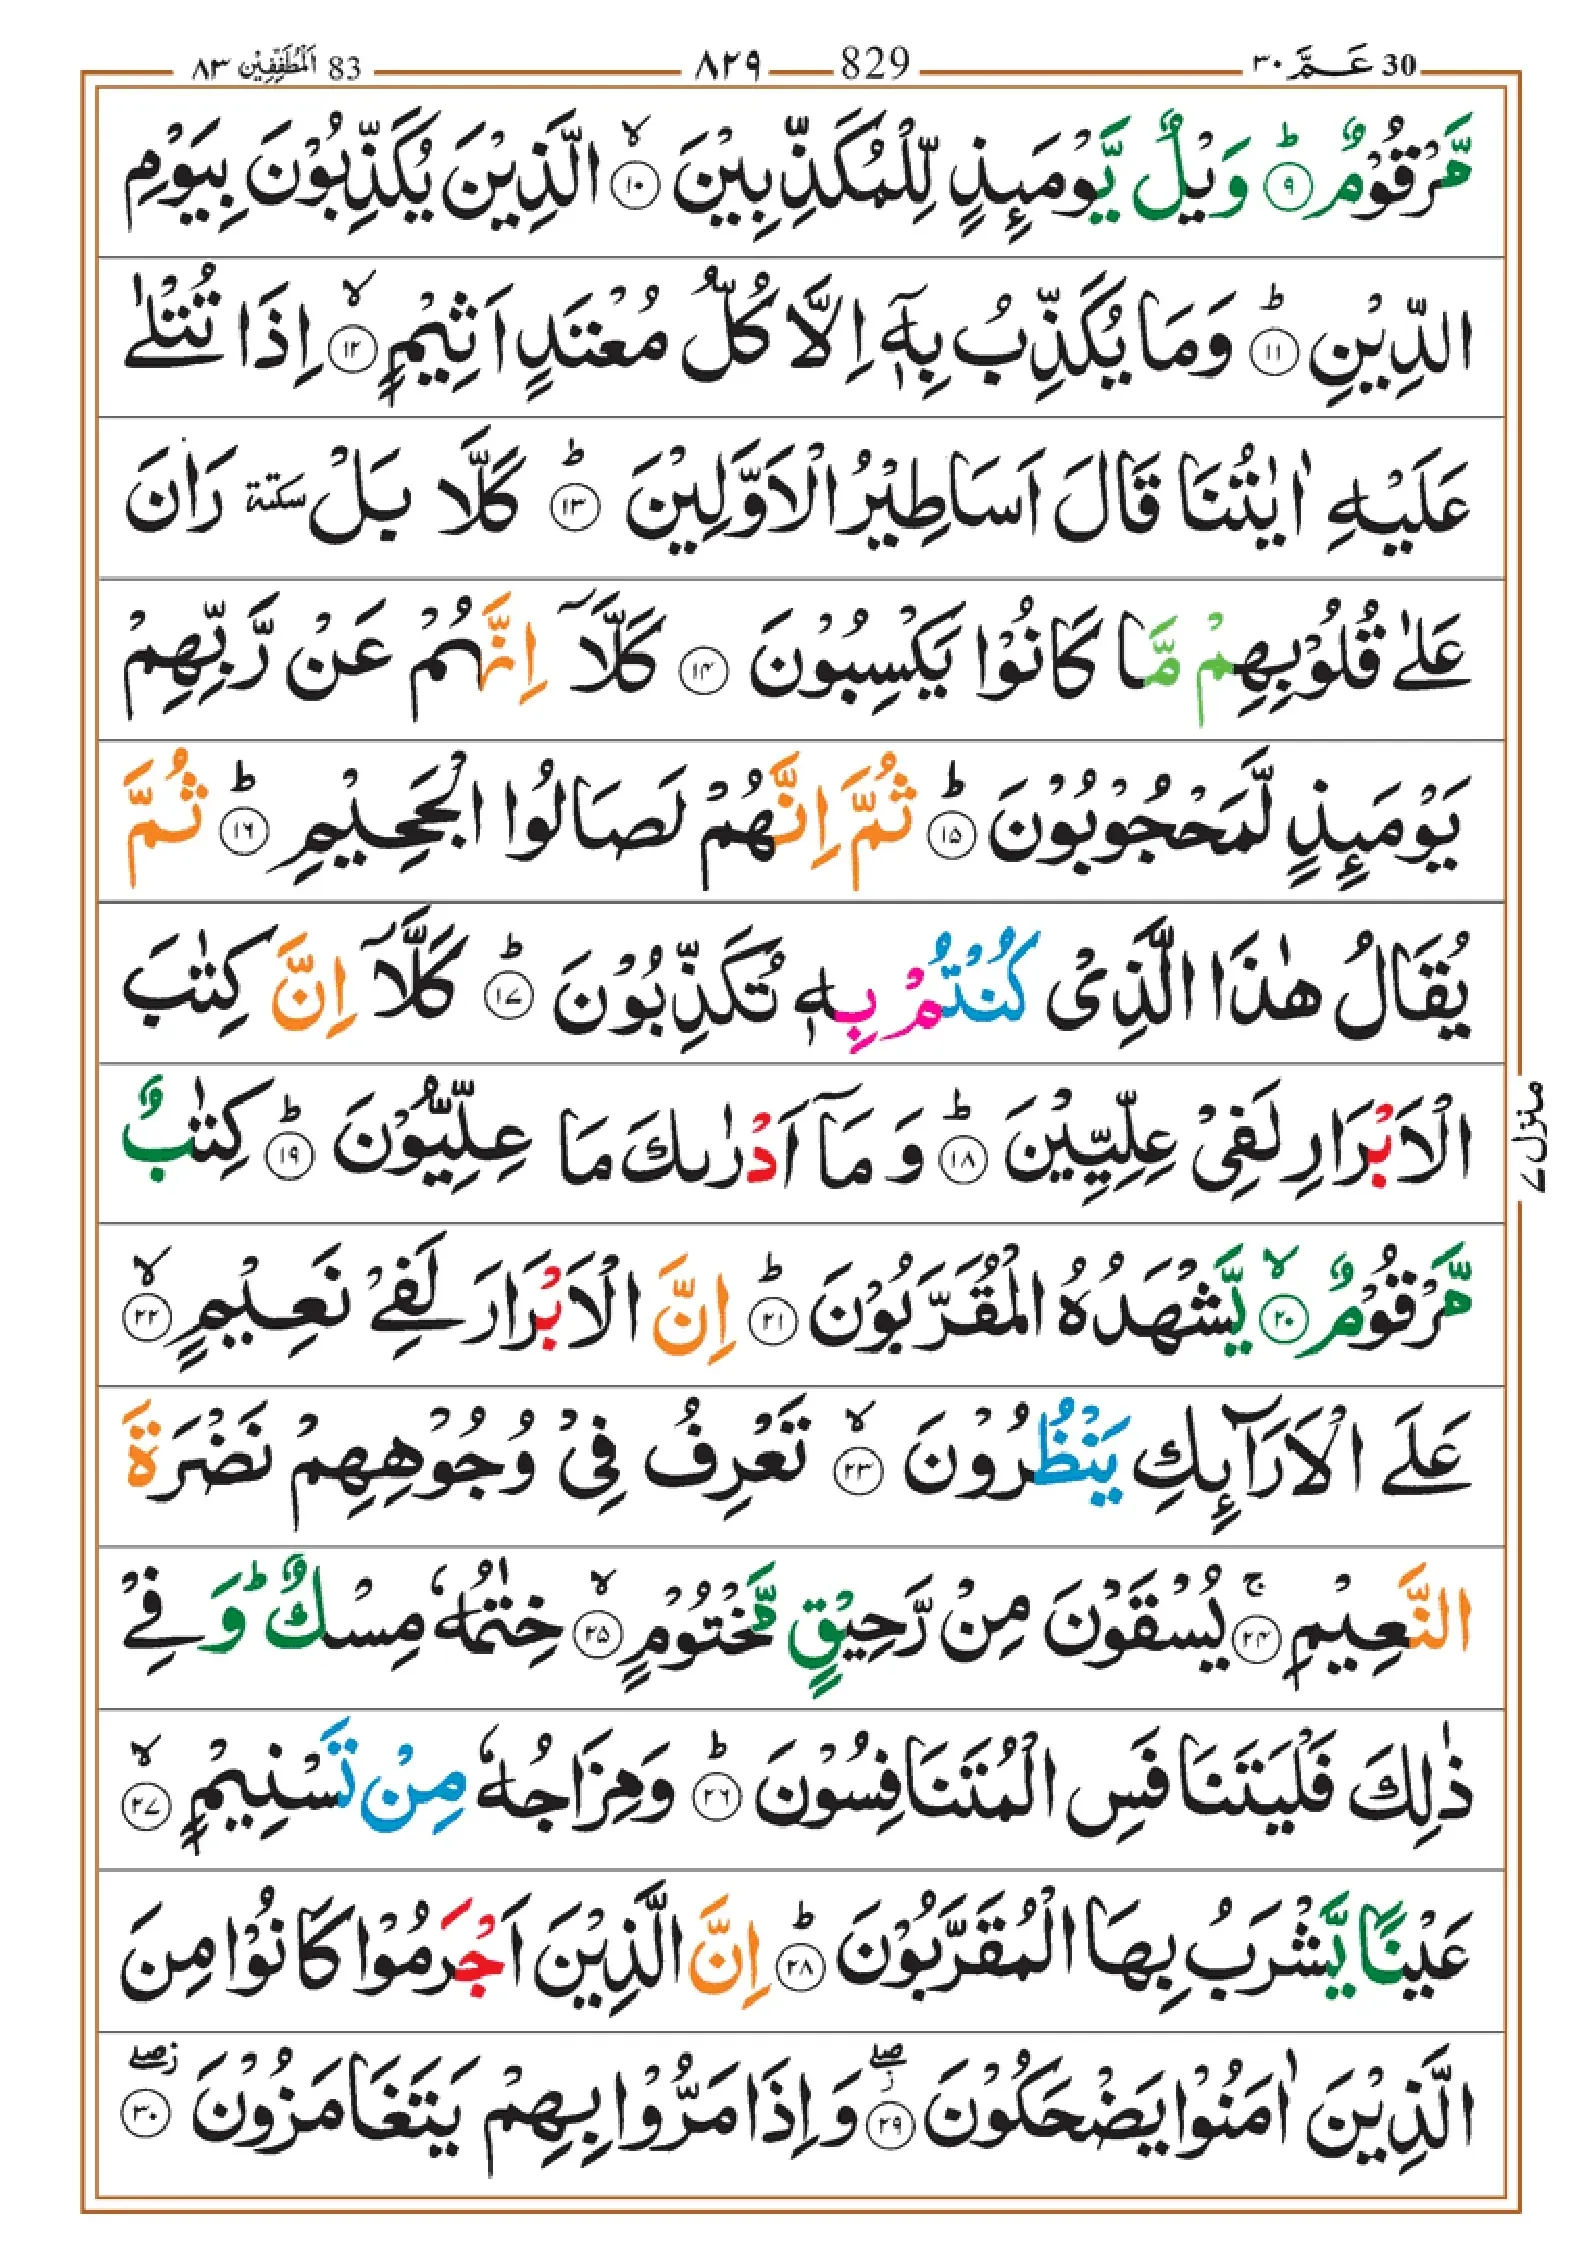 30 عَمَّ ٣٠ 829 ٨٢٩ 83 اَلْمُطَفِّفِيْن ٨٣
مَّرْقُوْمٌ ؕ‏ ﴿۹﴾ وَيْلٌ يَّوْمَىِٕذٍ لِّلْمُكَذِّبِيْنَ ۙ‏ ﴿۱۰﴾ الَّذِيْنَ يُكَذِّبُوْنَ بِيَوْمِ
الدِّيْنِ ؕ‏ ﴿۱۱﴾ وَمَا يُكَذِّبُ بِهٖۤ اِلَّا كُلُّ مُعْتَدٍ اَثِيْمٍ ۙ‏ ﴿۱۲﴾ اِذَا تُتْلٰى
عَلَيْهِ اٰيٰتُنَا قَالَ اَسَاطِيْرُ الْاَوَّلِيْنَ ؕ‏ ﴿۱۳﴾ كَلَّا بَلْ سكتة رَانَ
عَلٰى قُلُوْبِهِمْ مَّا كَانُوْا يَكْسِبُوْنَ ﴿۱۴﴾ كَلَّاۤ اِنَّهُمْ عَنْ رَّبِّهِمْ
يَوْمَىِٕذٍ لَّمَحْجُوْبُوْنَ ؕ‏ ﴿۱۵﴾ ثُمَّ اِنَّهُمْ لَصَالُوا الْجَحِيْمِ ؕ‏ ﴿۱۶﴾ ثُمَّ
يُقَالُ هٰذَا الَّذِىْ كُنْتُمْ بِهٖ تُكَذِّبُوْنَ ؕ‏ ﴿۱۷﴾ كَلَّاۤ اِنَّ كِتٰبَ
الْاَبْرَارِ لَفِىْ عِلِّيِّيْنَ ؕ‏ ﴿۱۸﴾ وَمَاۤ اَدْرٰىكَ مَا عِلِّيُّوْنَ ؕ‏ ﴿۱۹﴾ كِتٰبٌ
مَّرْقُوْمٌ ۙ‏ ﴿۲۰﴾ يَّشْهَدُهُ الْمُقَرَّبُوْنَ ؕ‏ ﴿۲۱﴾ اِنَّ الْاَبْرَارَ لَفِىْ نَعِيْمٍ ۙ‏ ﴿۲۲﴾
عَلَى الْاَرَآىِٕكِ يَنْظُرُوْنَ ۙ‏ ﴿۲۳﴾ تَعْرِفُ فِىْ وُجُوْهِهِمْ نَضْرَةَ
النَّعِيْمِ ۚ‏ ﴿۲۴﴾ يُسْقَوْنَ مِنْ رَّحِيْقٍ مَّخْتُوْمٍ ۙ‏ ﴿۲۵﴾ خِتٰمُهٗ مِسْكٌ ؕ وَفِىْ
ذٰلِكَ فَلْيَتَنَافَسِ الْمُتَنَافِسُوْنَ ؕ‏ ﴿۲۶﴾ وَمِزَاجُهٗ مِنْ تَسْنِيْمٍ ۙ‏ ﴿۲۷﴾
عَيْنًا يَّشْرَبُ بِهَا الْمُقَرَّبُوْنَ ؕ‏ ﴿۲۸﴾ اِنَّ الَّذِيْنَ اَجْرَمُوْا كَانُوْا مِنَ
الَّذِيْنَ اٰمَنُوْا يَضْحَكُوْنَ ۖز ﴿۲۹﴾ وَاِذَا مَرُّوْا بِهِمْ يَتَغَامَزُوْنَ ۖز ﴿۳۰﴾
منزل ۷